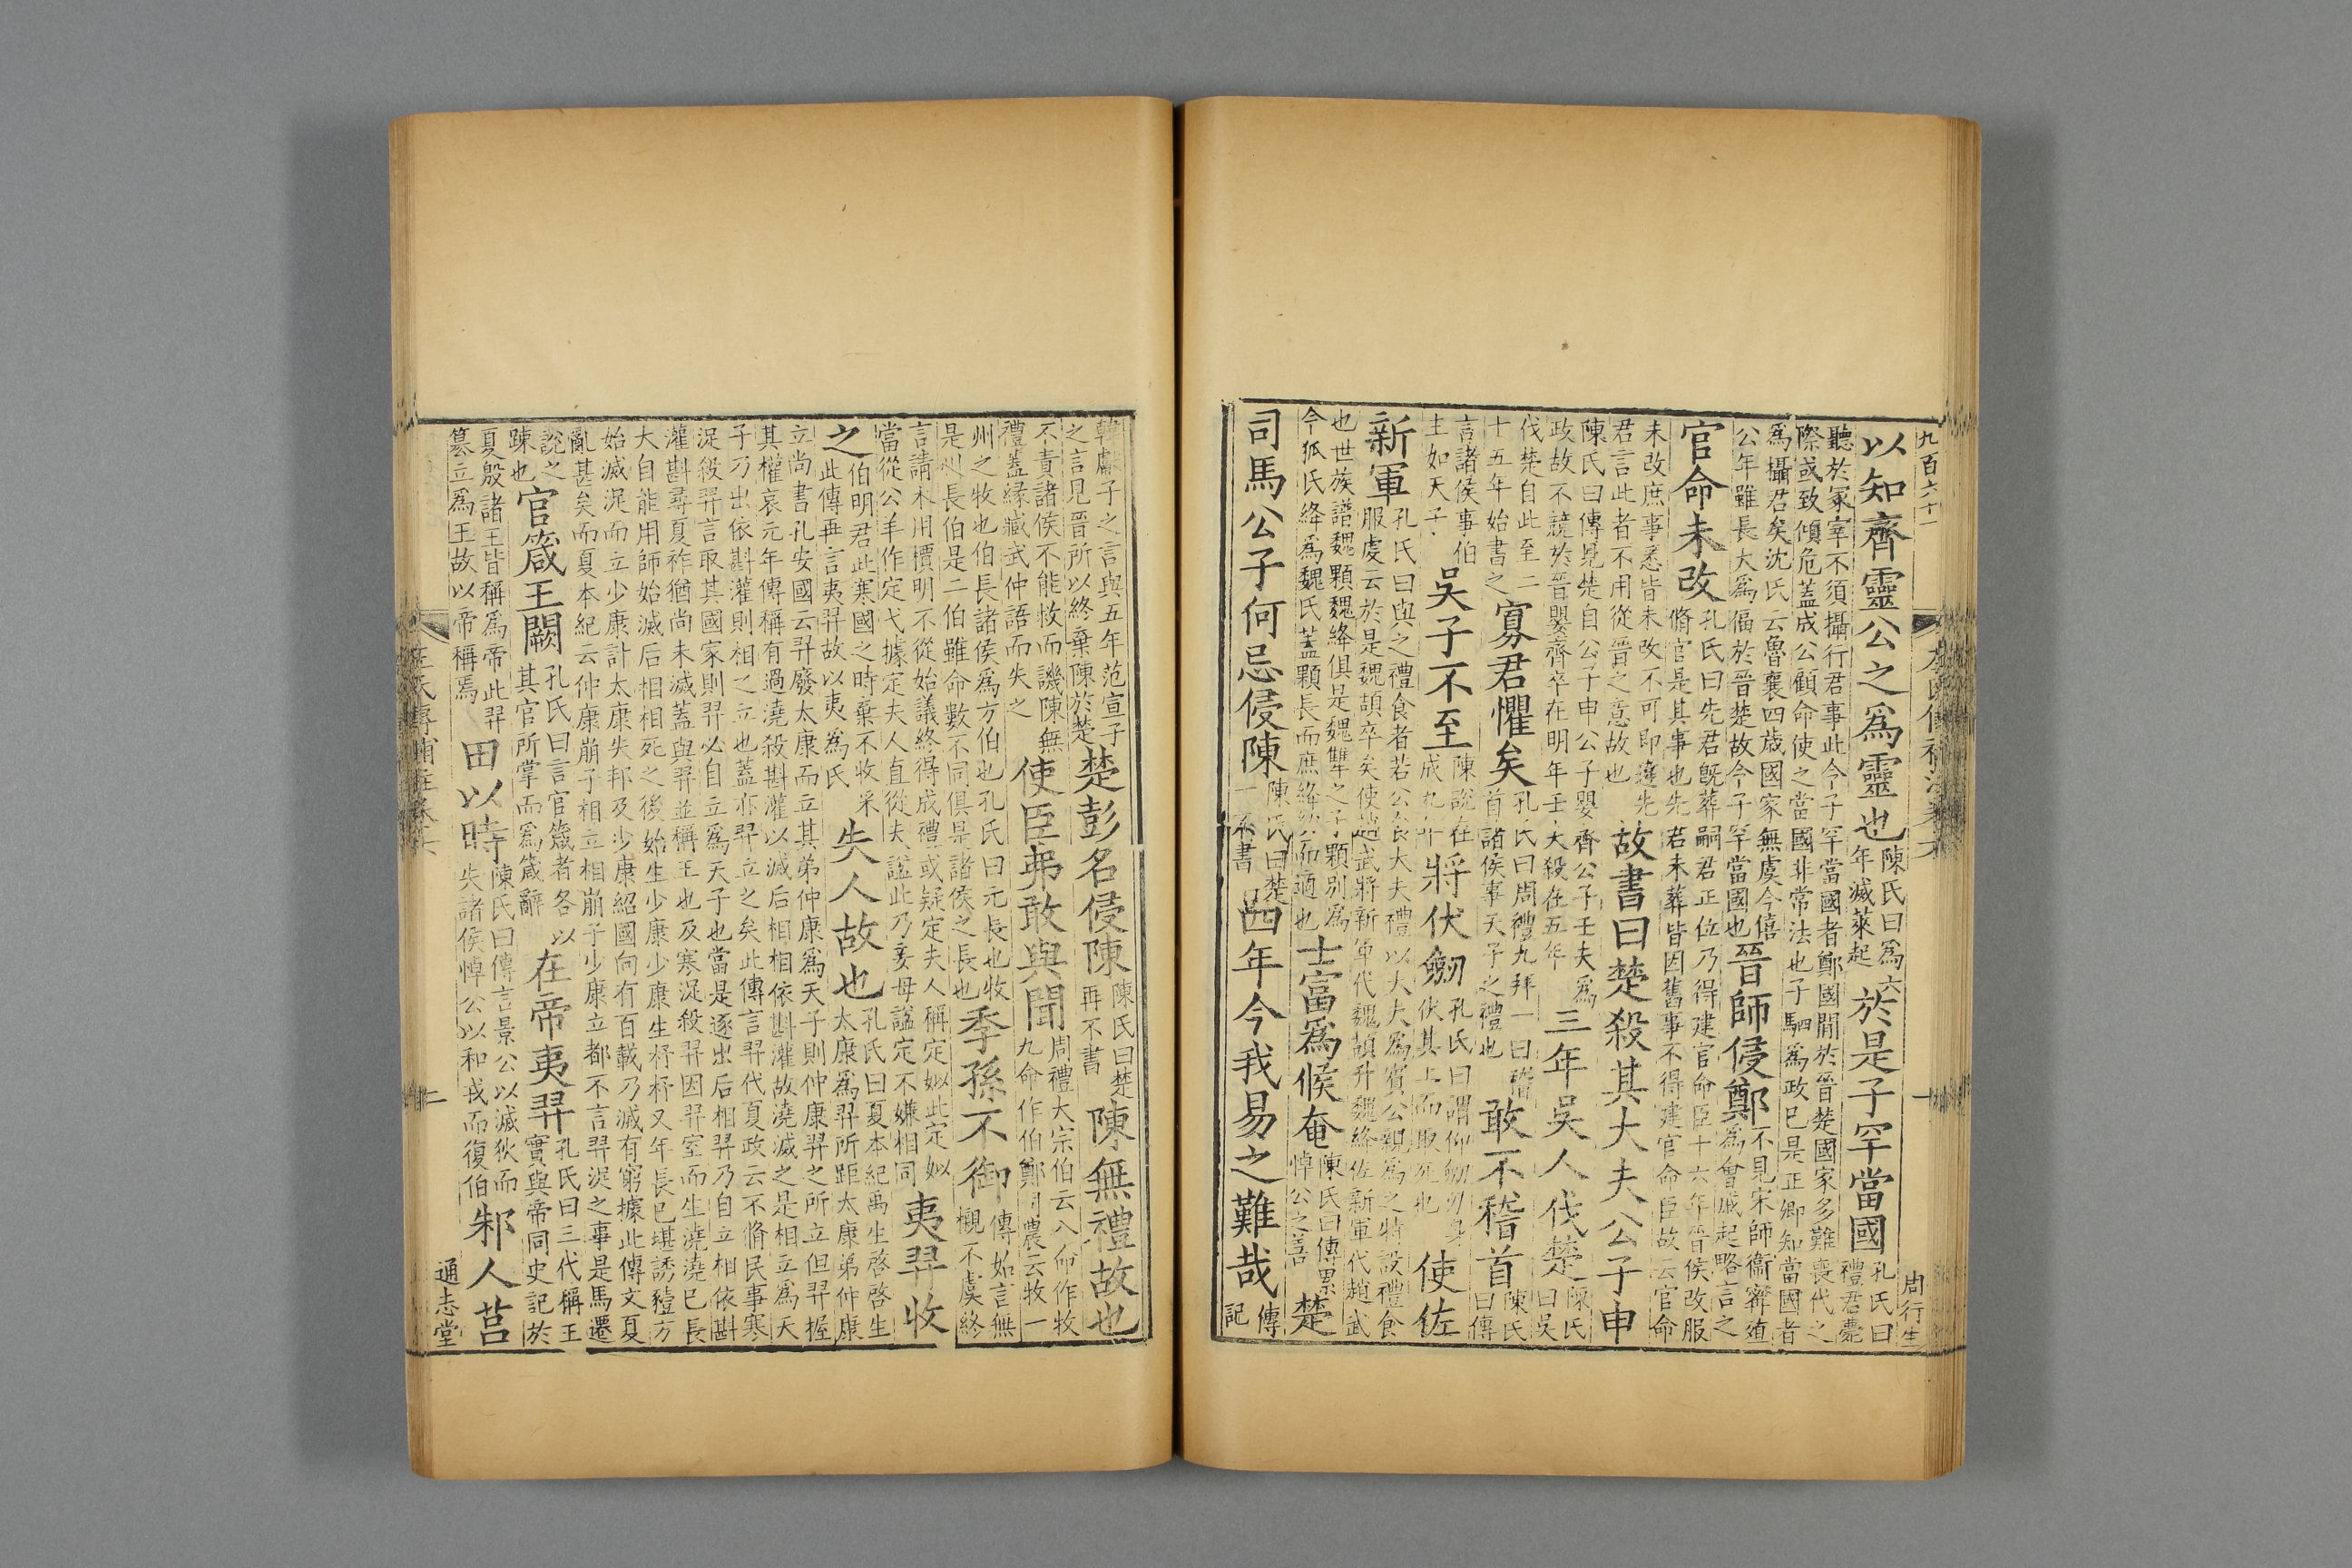 九百六十一
左氏傳補注卷六
一
周行生
以知齊靈公之爲靈也陳氏曰爲六年滅萊起於是子罕當國孔氏曰禮君薨
聽於冢宰不須攝行君事此今子罕當國者鄭國閒於晉楚國家多難喪代之
際或致傾危蓋成公顧命使之當國非常法也子駟爲政已是正卿知當國者
爲攝君矣沈氏云魯襄四歲國家無虞今僖公年雖長大爲偪於晉楚故今子罕當國也晉師侵鄭不見宋師衞甯殖爲會戚起略言之
官命未改孔氏曰先君旣葬嗣君正位乃得建官命臣十六年晉侯改服脩官是其事也先君未葬皆因舊事不得建官命臣故云官命
未改庶事悉皆未改不可即違先君言此者不用從晉之意故也故書曰楚殺其大夫公子申
陳氏曰傳見楚自公子申公子嬰齊公子壬夫爲政故不競於晉嬰齊卒在明年壬夫殺在五年三年吳人伐楚陳氏曰吳
伐楚自此至二十五年始書之寡君懼矣孔氏曰周禮九拜一曰稽首諸侯事天子之禮也敢不稽首陳氏曰傳
言諸侯事伯主如天子吳子不至陳說在成九年將伏劒孔氏曰謂仰劒刃身伏其上而取死也使佐
新軍孔氏曰與之禮食者若公食大夫禮以大夫爲賓公親爲之特設禮食服虔云於是魏頡卒矣使趙武將新軍代魏頡升魏絳佐新軍代趙武
也世族譜魏顆魏絳俱是魏犨之子顆別爲令狐氏絳爲魏氏蓋顆長而庶絳幼而適也士富爲候奄陳氏曰傳累悼公之善楚
司馬公子何忌侵陳陳氏曰楚一不書四年今我易之難哉傳記
韓獻子之言與五年范宣子之言見晉所以終棄陳於楚楚彭名侵陳陳氏曰楚再不書陳無禮故也
不責諸侯不能救而譏陳無禮蓋緣臧武仲語而失之使臣弗敢與聞周禮大宗伯云八命作牧九命作伯鄭司農云牧一
州之牧也伯長諸侯爲方伯也孔氏曰元長也牧是州長伯是二伯雖命數不同俱是諸侯之長也季孫不御傳如言無櫬不虞終
言請木用檟明不從始議終得成禮或疑定夫人稱定姒此定姒當從公羊作定弋據定夫人直從夫諡此乃妾母諡定不嫌相同夷羿收
之伯明君此寒國之時棄不收采此傳再言夷羿故以夷爲氏失人故也孔氏曰夏本紀禹生啓啓生太康爲羿所距太康弟仲康
立尚書孔安國云羿廢太康而立其弟仲康爲天子則仲康羿之所立但羿握
其權哀元年傳稱有過澆殺斟灌以滅后相相依斟灌故澆滅之是相立爲天
子乃出依斟灌則相之立也蓋亦羿立之矣此傳言羿代夏政云不脩民事寒
浞殺羿言取其國家則羿必自立爲天子也當是逐出后相羿乃自立相依斟
灌斟尋夏祚猶尚未滅蓋與羿並稱王也及寒浞殺羿因羿室而生澆澆已長
大自能用師始滅后相相死之後始生少康少康生杼杼又年長已堪誘豷方
始滅浞而立少康計太康失邦及少康紹國向有百載乃滅有窮據此傳文夏
亂甚矣而夏本紀云仲康崩子相立相崩子少康立都不言羿浞之事是馬遷
說之疎也官箴王闕孔氏曰言官箴者各以其官所掌而爲箴辭在帝夷羿孔氏曰三代稱王實與帝同史記於
夏殷諸王皆稱爲帝此羿簒立爲王故以帝稱焉田以時陳氏曰傳言景公以滅狄而失諸侯悼公以和戎而復伯邾人莒
左氏傳補注卷六
二
通志堂